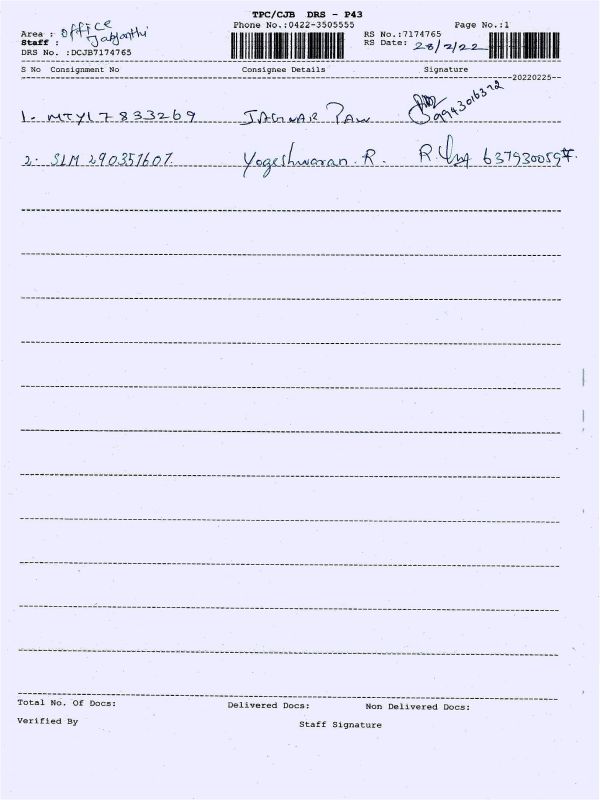 TPC/CJB DRS - P43
Phone No.:0422-3505555 Page No.:1
Area : office
Staff : RS No.:7174765
DRS No. :DCJB7174765 RS Date: 28/2/22
S No Consignment No Consignee Details Signature
20220225
1. MTY17833269 JAGUAR PAW 9943016372
2. SLM 290357607. Yogeshwaran. R. R. 637930059
Total No. Of Docs: Delivered Docs: Non Delivered Docs:
Verified By Staff Signature